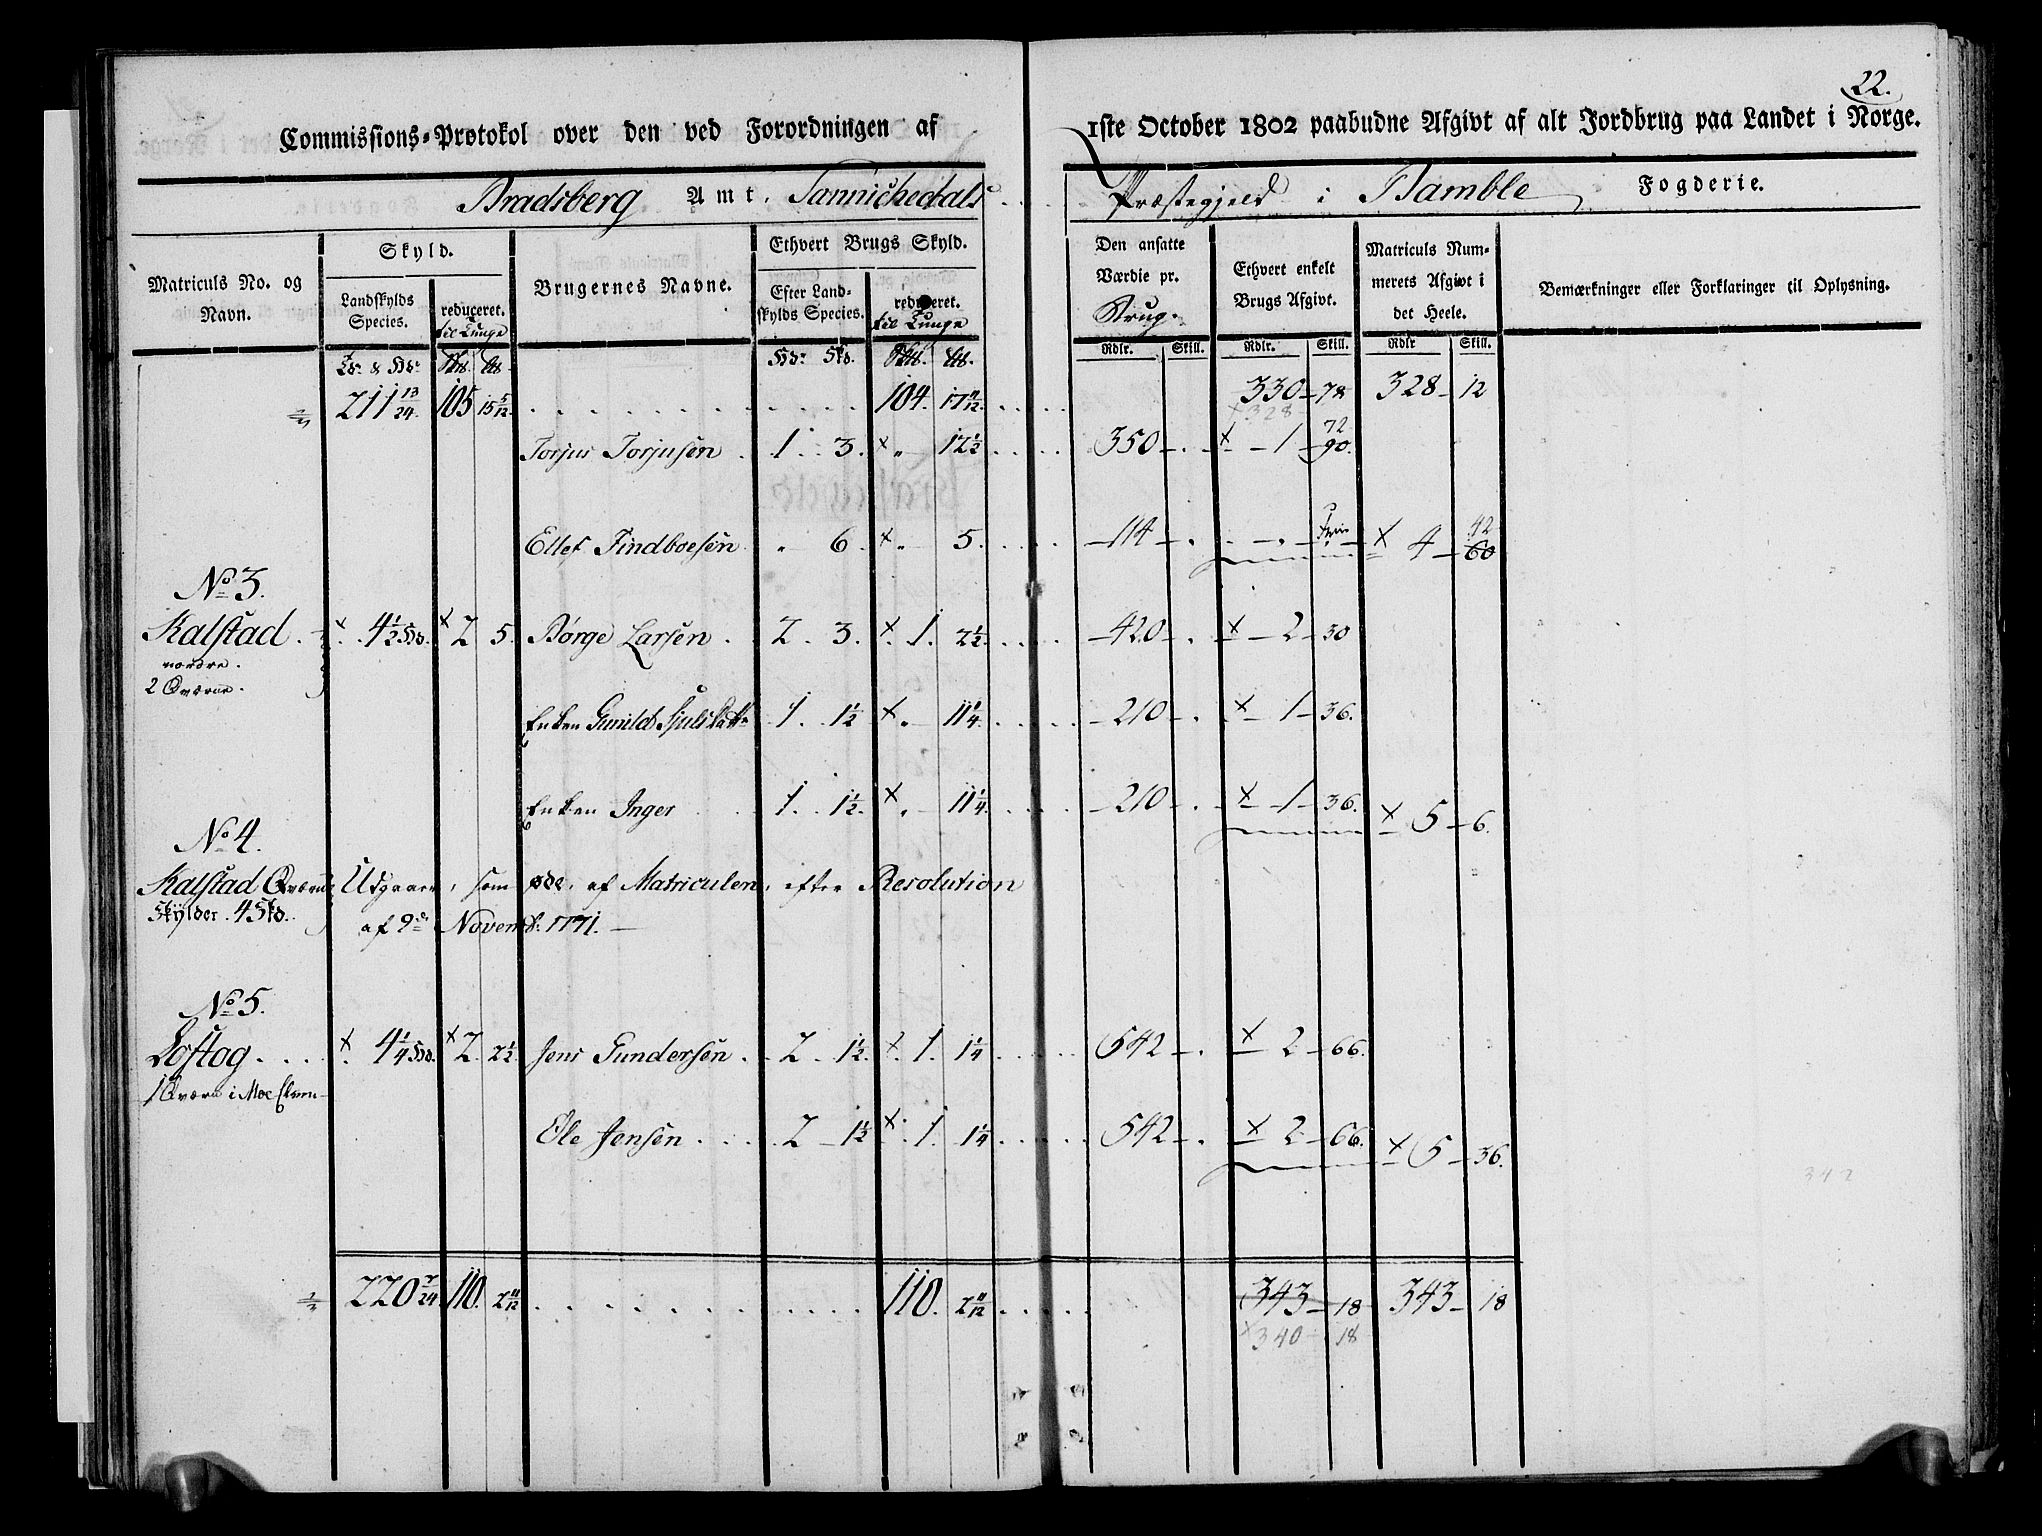 22.
Commissions=Protokol over den ved Forordningen af 1ste October 1802 paabudne Afgivt af alt Jordbrug paa Landet i Norge.
Bradsberg Amt. Sannichedals Præstegjeld i Bamble Fogderie.
Matriculs No. og Navn.
Skyld.
Landskylds Species.
reduceret. til Tunge
Brugernes Navne.
Ethvert Brugs Skyld.
Efter Landskylds Species.
reduceret. til Tunge
Den ansatte Værdie pr. Brug.
Ethvert enkelt Brugs Afgivt.
Matriculs Nummerets Afgivt i det Heele.
Bemærkninger eller Forklaringer til Oplysning.
Rdlr. Skill. Rdlr. Skill. Rdlr Skill.
211 13/24 105 15 5/12 104. 17 11/12 330 - 78 328 - 12
x 328
Torjus Torjusen . 1 . 3. x „ 12 1/2 350 - . x - 1 - 90. 72
Ellef Findboesen „ 6. x „ 5. 114 - . Frie x 4 - 60 42
No 3.
Kalstad . x 4 1/2 Hd. x 2 5. Børge Larsen . 2 . 3. x . 1 . 2 1/2 420 - . x - 2 - 30
nordre.
2 Qværne.
Enken Gunild 1 . 1 1/2 x „ 11 1/4 210 - . x - 1 - 36.
Enken Inger 1 . 1 1/2. x „ 11 1/4 210 - . x - 1 - 36. x 5 - 6.
No 4.
Kalstad Qværne Udgaaer, som øde, af Matriculen, efter Resolution
Skylder . 4 Skd. af 9de Novemb. 1771. —
No 5.
Loftog . . . . x 4 1/4 Hd. x 2. 2 1/2 Jens Gundersen . 2 . 1 1/2. x . 1 . 1 1/4 542 - . x 2 - 66.
1 Qværn i Moe Elven
Ole Jensen . . . . 2 - 1 1/2 x . 1 . 1 1/4 542 - . x 2 - 66. x 5 - 36.
342
220 7/24 110. 2 11/12 110. 2 11/12 343 - 18 343 - 18
x 340 - 18